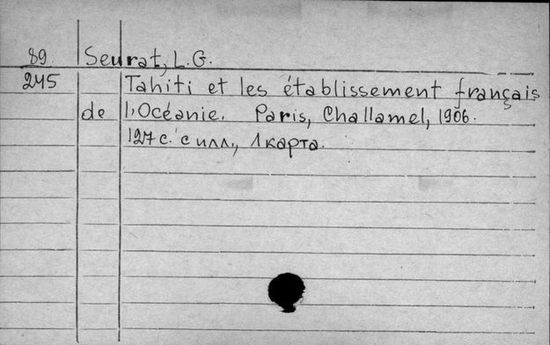 89 Seurat, L.G.
245 Tahiti et les établissement français
de l'Océanie. Paris, Challamel, 1906.
127 с. с илл., 1 карта.